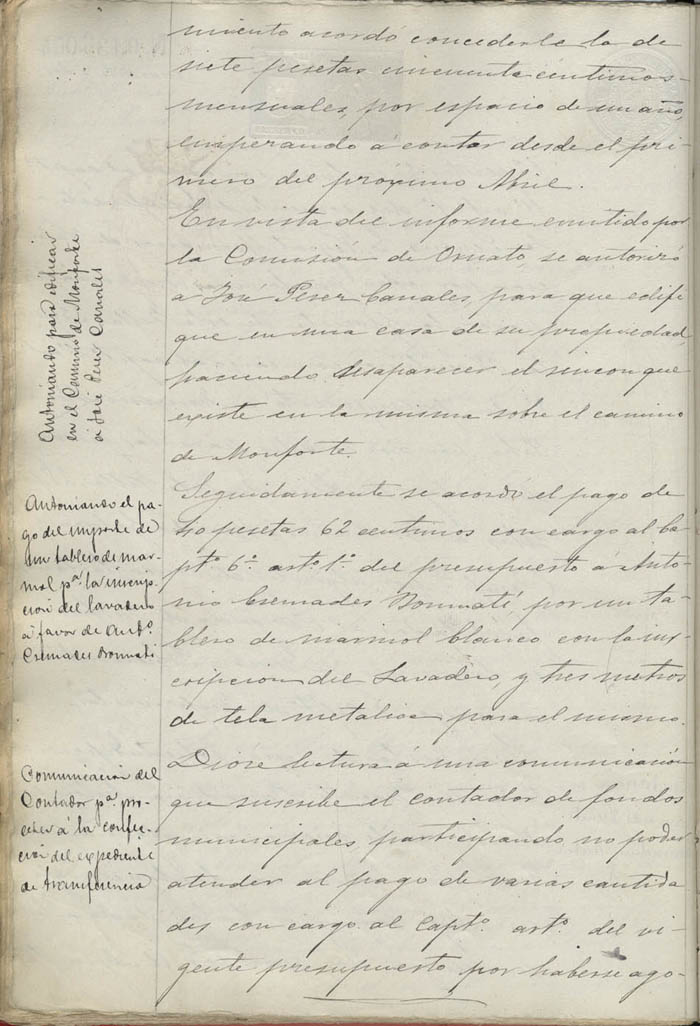 miento acordó concederle la de
siete pesetas cincuenta centimos
mensuales, por espacio de un año,
emperando á contar desde el pri-
mero del próximo Abril.
Autoriando para edificar
en el Camino de Monforte
a José Perez Canales
En vista del informe emitido por
la Comisión de Ornato, se autorizó
a José Perez Canales, para que edifi
que en una casa de su propiedad,
haciendo desaparecer el rincon que
existe en la misma sobre el camino
de Monforte.
Autoriando el pa-
go del importe de
un tablero de mar-
mol pª la inscrip-
cion del lavadero
a favor de Antº
Cremades Bonmati
Seguidamente se acordó el pago de
40 pesetas 62 centimos con cargo al Ca
ptº 6º artº 1º del presupuesto á Anto-
nio Cremades Bonmatí, por un ta-
blero de marmol blanco con la ins-
cripcion del Lavadero, y tres metros
de tela metalica para el mismo.
Comunicacion del
Contador pª pro-
ceder á la confec-
cion del expediente
de transferencia
Dióse lectura á una comunicación
que suscribe el contador de fondos
municipales participando no poder
atender al pago de varias cantida
des con cargo al Captº artº del vi-
gente presupuesto, por haberse ago-